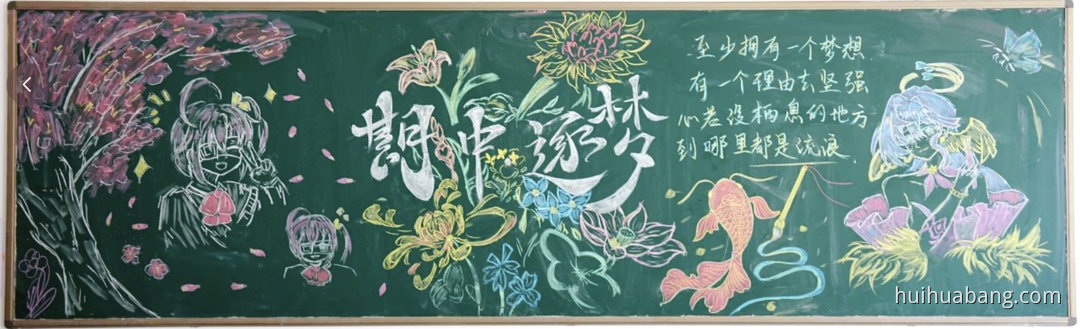 期中逐梦
至少拥有一个梦想
有一个理由去坚强
心若没栖息的地方
到哪里都是流浪
huihuabang.com